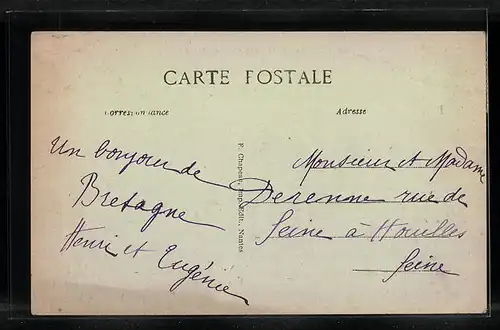 CARTE POSTALE
Correspondance
Adresse
Un bonjour de
Bretagne
Henri et Eugénie
F. Chapeau, Imp.-Edit., Nantes
Monsieur et Madame
Derenne rue de
Seine à Houilles
Seine